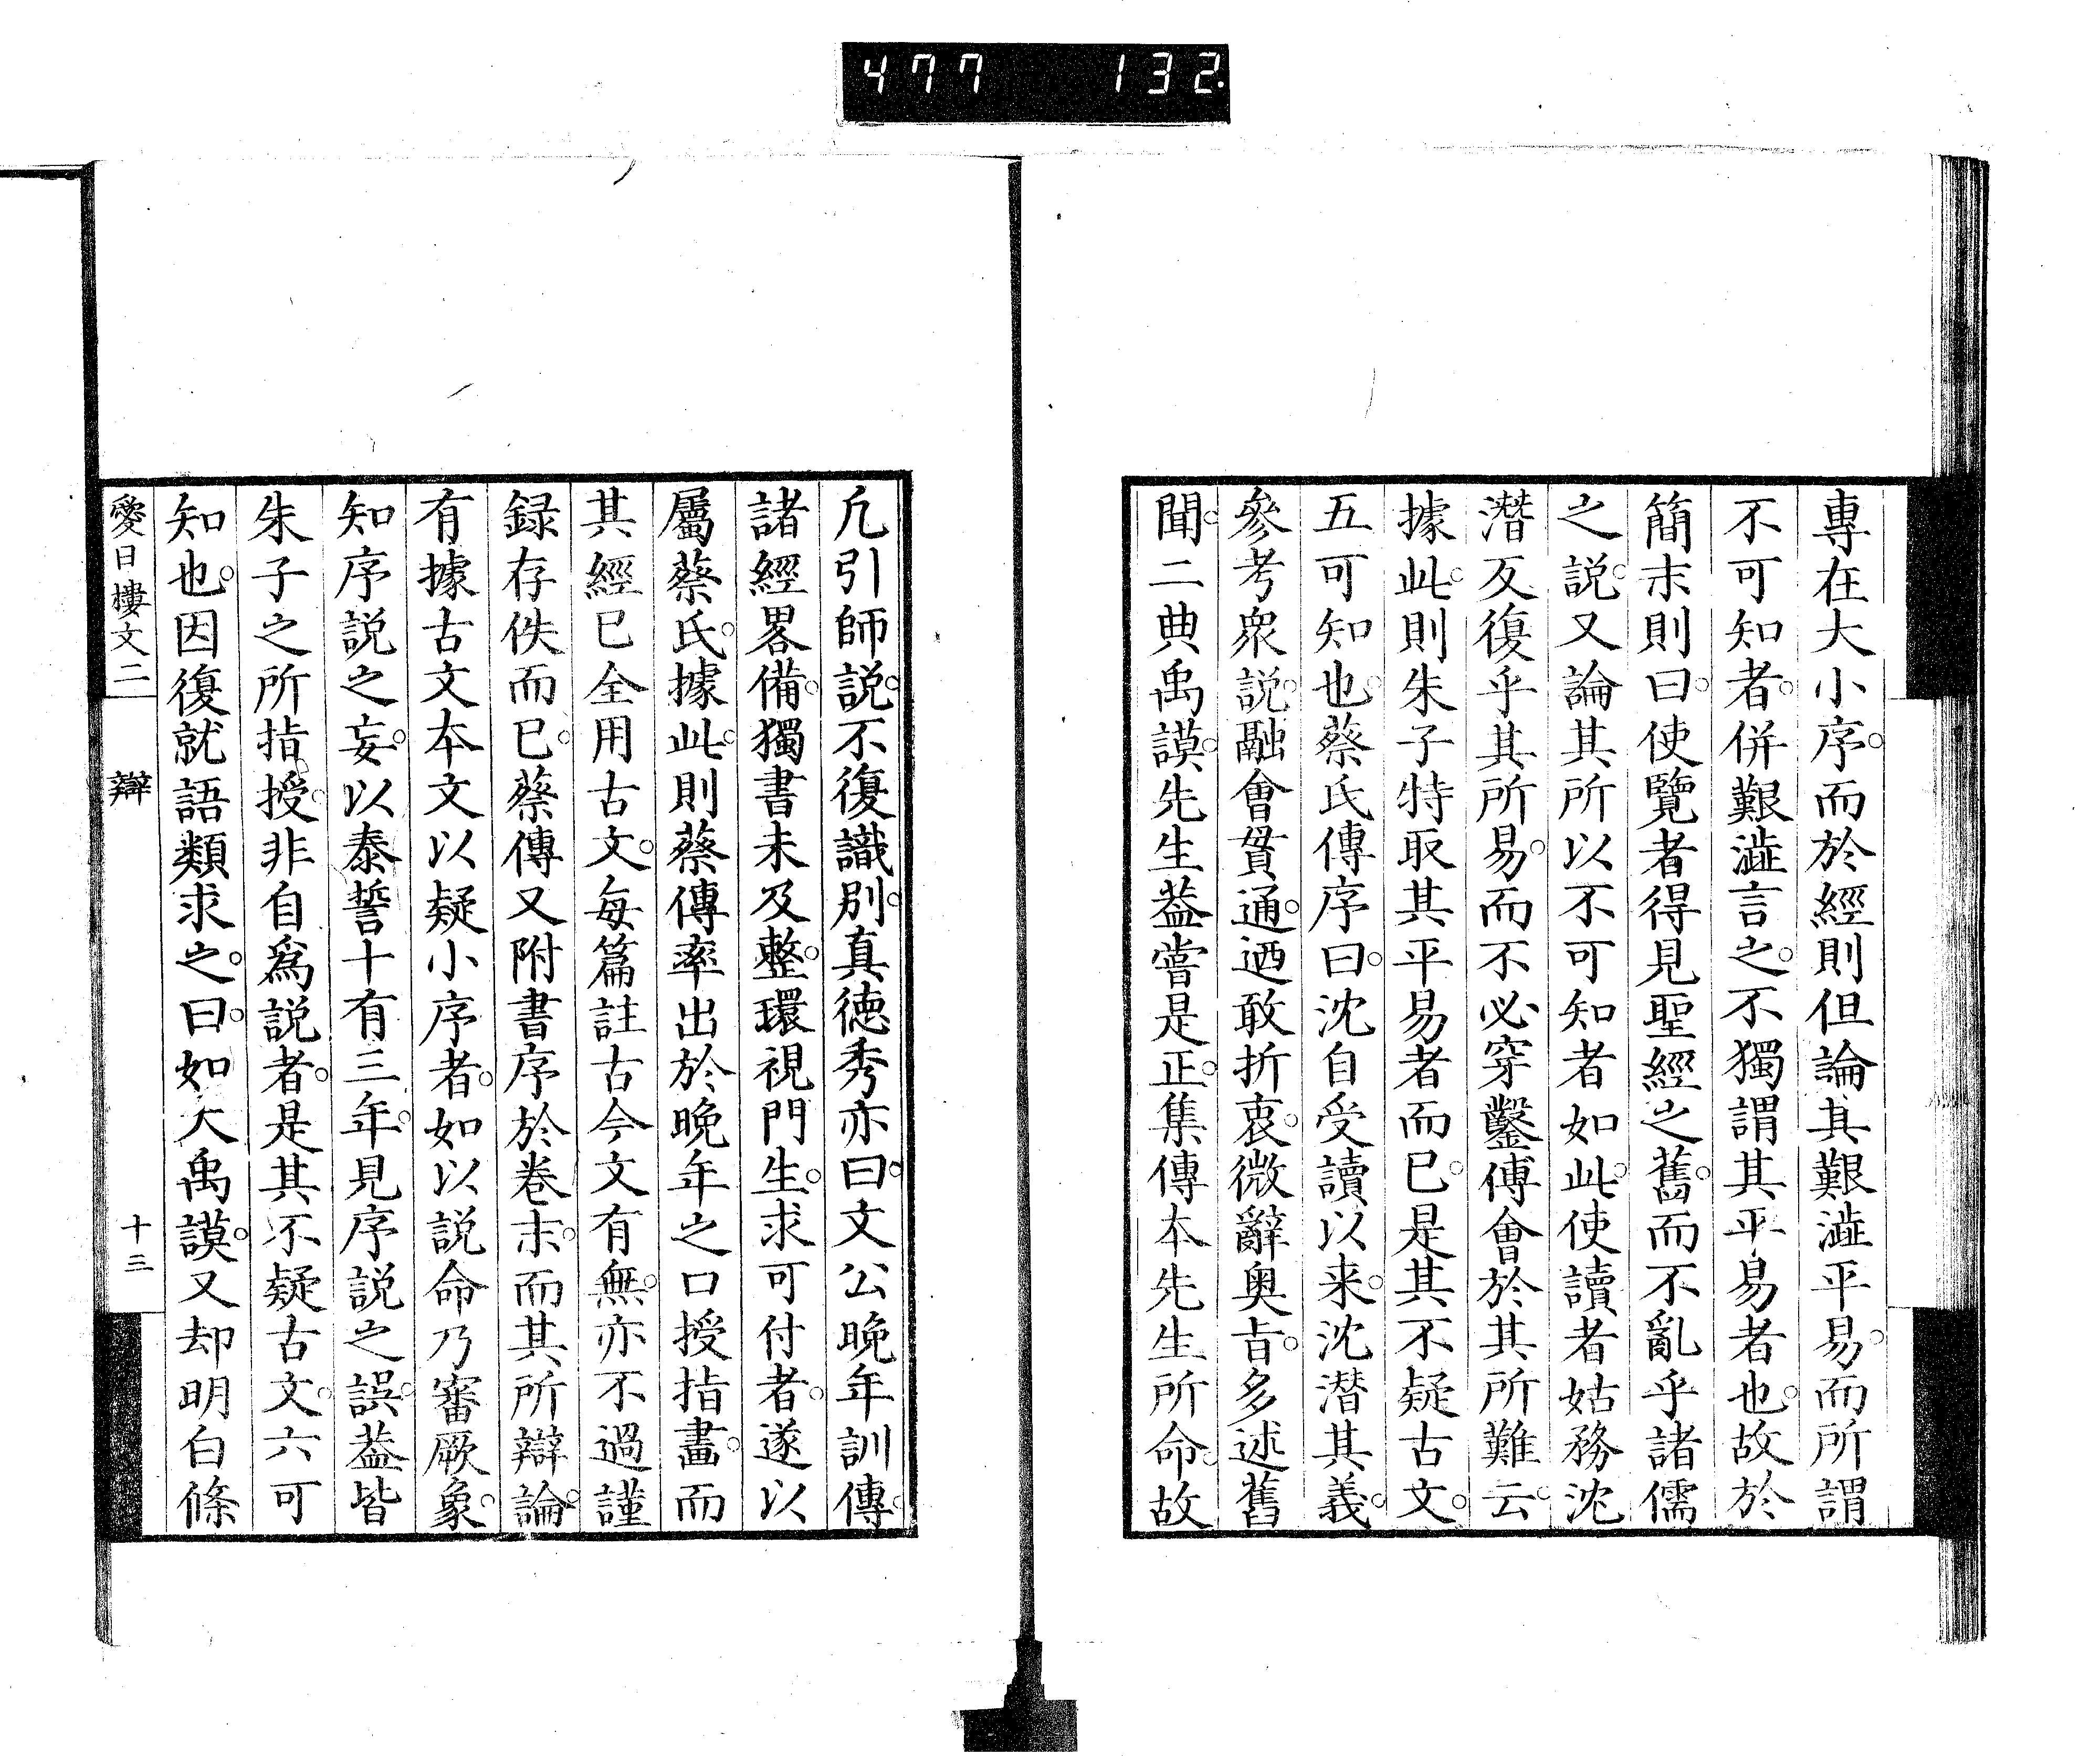 477 132.
專在大小序。而於經則但論其艱澁平易。而所謂
不可知者。併艱澁言之。不獨謂其平易者也。故於
簡末則曰。使覽者得見聖經之舊。而不亂乎諸儒
之説。又論其所以不可知者如此。使讀者姑務沈
潛反復乎其所易。而不必穿鑿傅會於其所難云。
據此。則朱子特取其平易者而已。是其不疑古文。
五可知也。蔡氏傳序曰。沈自受讀以来。沈潛其義。
參考衆説。融會貫通。迺敢折衷。微辭奥旨。多述舊
聞。二典禹謨。先生葢嘗是正。集傳本先生所命。故
凢引師説。不復識別。真德秀亦曰。文公晩年訓傳。
諸經畧備。獨書未及整。環視門生。求可付者。遂以
屬蔡氏。據此。則蔡傳率出於晩年之口授指畫。而
其經已全用古文。毎篇註古今文有無。亦不過謹
録存佚而已。蔡傳又附書序於巻末。而其所辯論。
有據古文本文以疑小序者。如以説命乃審厥象。
知序説之妄。以泰誓十有三年。見序説之誤。葢皆
朱子之所指授。非自爲説者。是其不疑古文。六可
知也。因復就語類求之。曰。如大禹謨。又却明白條
愛日樓文二 辯 十三